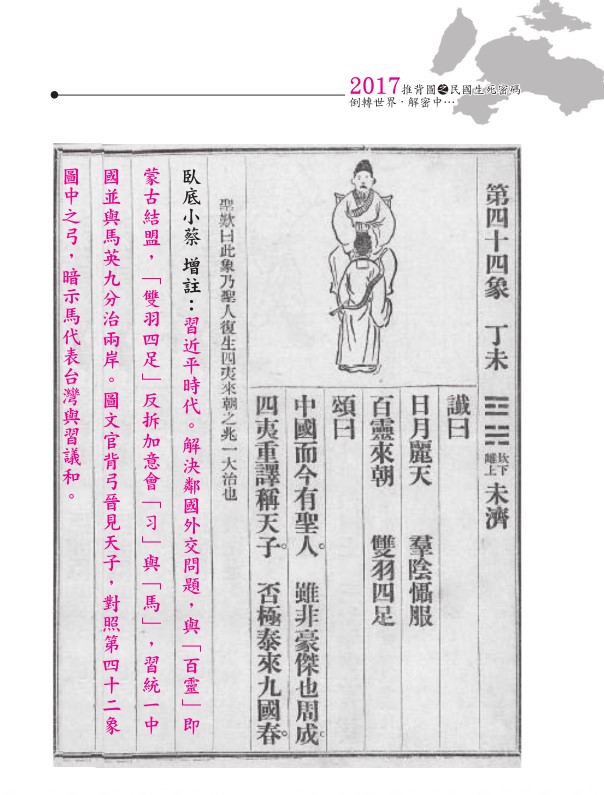 2017推背圖之民國生死密碼
倒轉世界．解密中…
第四十四象 丁未 坎下離上 未濟
讖曰
日月麗天 羣陰懾服
百靈來朝 雙羽四足
頌曰
中國而今有聖人。 雖非豪傑也周成。
四夷重譯稱天子。 否極泰來九國春。
聖歎曰此象乃聖人復生四夷來朝之兆一大治也
臥底小蔡 增註：習近平時代。解決鄰國外交問題，與「百靈」即
蒙古結盟，「雙羽四足」反拆加意會「习」與「馬」，習統一中
國並與馬英九分治兩岸。圖文官背弓晉見天子，對照第四十二象
圖中之弓，暗示馬代表台灣與習議和。